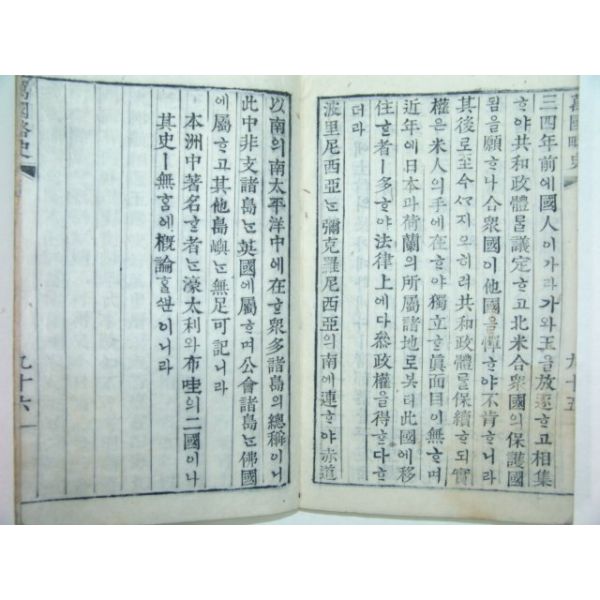 萬國略史
九十五
三四年前에國人이가라가와王을放逐ᄒᆞ고相集
ᄒᆞ야共和政體ᄅᆞᆯ議定ᄒᆞ고北米合衆國의保護國
됨을願ᄒᆞ나合衆國이他國을憚ᄒᆞ야不肯ᄒᆞ니라
其後로至今ᄭᆞ지오히려共和政體ᄅᆞᆯ保續ᄒᆞ되實
權은米人의手에在ᄒᆞ야獨立ᄒᆞᆫ眞面目이無ᄒᆞ며
近年에日本과荷蘭의所屬諸地로봇터此國에移
住ᄒᆞᆫ者ㅣ多ᄒᆞ야法律上에다叅政權을得ᄒᆞᆫ다ᄒᆞ
더라
波里尼西亞ᄂᆞᆫ彌克羅尼西亞의南에連ᄒᆞ야赤道
以南의南太平洋中에在ᄒᆞᆫ衆多諸島의總稱이니
此中非支諸島ᄂᆞᆫ英國에屬ᄒᆞ며公會諸島ᄂᆞᆫ佛國
에屬ᄒᆞ고其他島嶼ᄂᆞᆫ無足可記니라
本洲中著名ᄒᆞᆫ者ᄂᆞᆫ濠太利와布哇의二國이나
其史ㅣ無ᄒᆞᆷ애槪論ᄒᆞᆯᄲᅮᆫ이니라
萬國略史
九十六